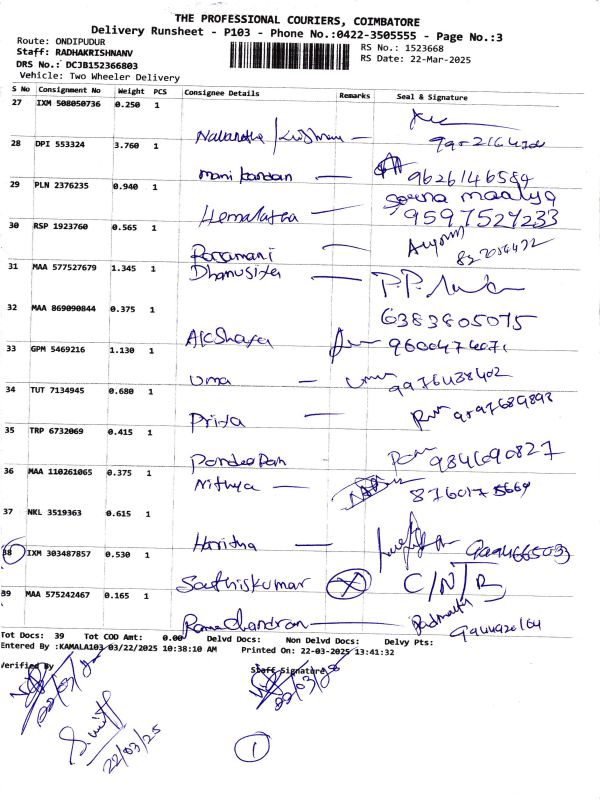 THE PROFESSIONAL COURIERS, COIMBATORE
Delivery Runsheet - P103 - Phone No.:0422-3505555 - Page No.:3
Route: ONDIPUDUR
RS No.: 1523668
Staff: RADHAKRISHNANV
RS Date: 22-Mar-2025
DRS No.: DCJB152366803
Vehicle: Two Wheeler Delivery
S No Consignment No Weight PCS Consignee Details Remarks Seal & Signature
27 IXM 508050736 0.250 1
28 DPI 553324 3.760 1
mani kandan — 9626146584
29 PLN 2376235 0.940 1
Hemalatha — 9597527233
30 RSP 1923760 0.565 1
Paramani —
31 MAA 577527679 1.345 1
Dhanusiya —
32 MAA 869090844 0.375 1
6383805075
Akshaya
33 GPM 5469216 1.130 1
Uma — 9976438402
34 TUT 7134945 0.680 1
Priya —
35 TRP 6732069 0.415 1
9841690827
36 MAA 110261065 0.375 1
Nithya —
37 NKL 3519363 0.615 1
Haritha —
38 IXM 303487857 0.530 1
Sathiskumar X C/N/R
39 MAA 575242467 0.165 1
Ramachandran —
Tot Docs: 39 Tot COD Amt: 0.00 Delvd Docs: Non Delvd Docs: Delvy Pts:
Entered By :KAMALA103 03/22/2025 10:38:10 AM Printed On: 22-03-2025 13:41:32
Verified By Staff Signature
22/03/25
1